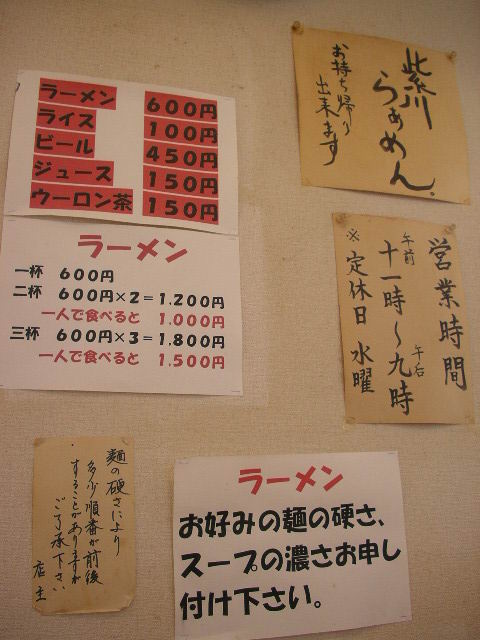 ラーメン 600円
ライス 100円
ビール 450円
ジュース 150円
ウーロン茶 150円
ラーメン
一杯 600円
二杯 600円×2=1.200円
一人で食べると 1.000円
三杯 600円×3=1.800円
一人で食べると 1.500円
紫川
らぁめん。
お持ち帰り
出来ます
営業時間
午前 午后
十一時〜九時
※定休日 水曜
麺の硬さにより
多少順番が前後
することがありますが
ご了承下さい
店主
ラーメン
お好みの麺の硬さ、
スープの濃さお申し
付け下さい。